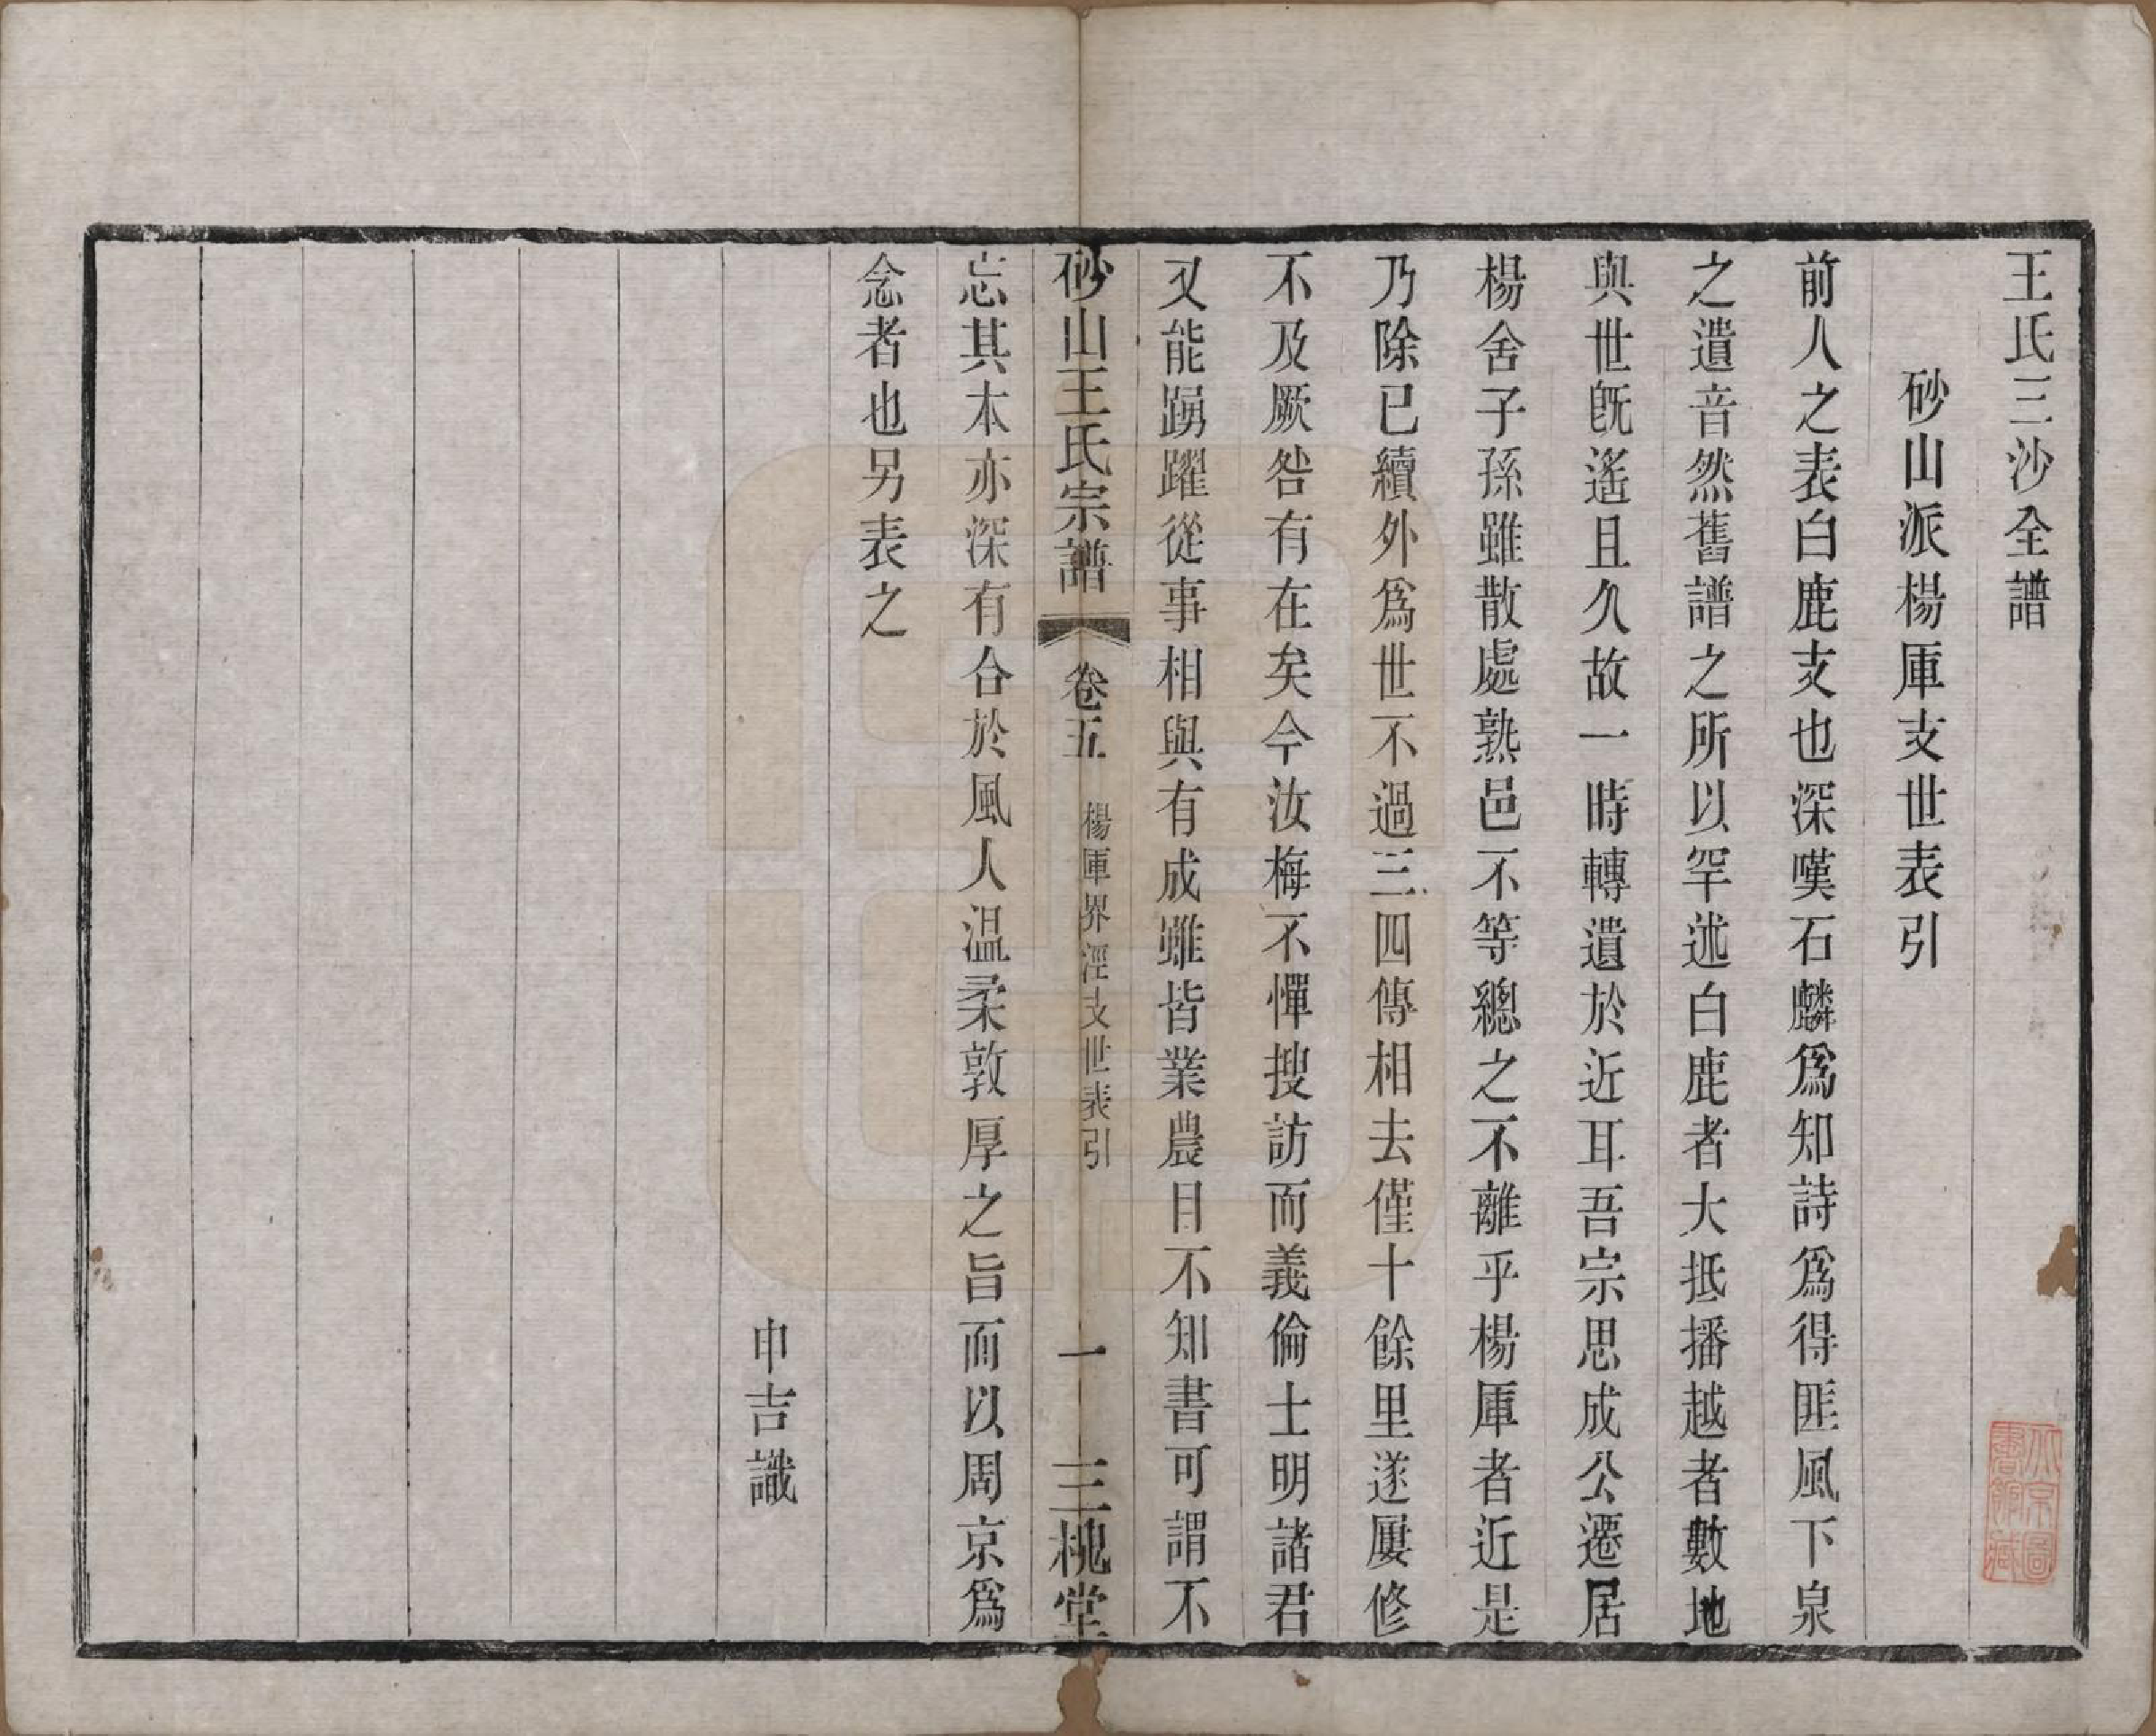 王氏三沙全譜
砂山派楊厙支世表引
前人之表白鹿支也深嘆石麟爲知詩爲得匪風下泉
之遺音然舊譜之所以罕述白鹿者大抵播越者數地
與世旣遙且久故一時轉遺於近耳吾宗思成公遷居
楊舍子孫雖散處熟邑不等總之不離乎楊厙者近是
乃除已續外爲世不過三四傳相去僅十餘里遂屢修
不及厥咎有在矣今汝梅不憚搜訪而義倫士明諸君
又能踴躍從事相與有成雖皆業農目不知書可謂不
砂山王氏宗譜 卷五 楊厙界涇支世表引 一 三槐堂
忘其本亦深有合於風人温柔敦厚之旨而以周京爲
念者也另表之
申吉識
北京圖
書館藏